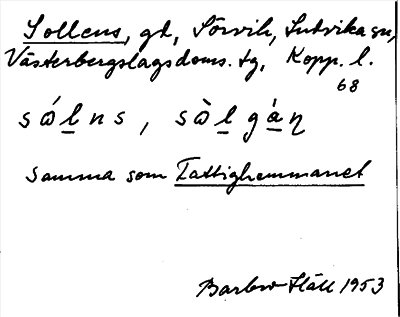 Sollens, gd, Sörvik, Ludvika sn,
Västerbergslags doms. tg, Kopp. l.
68
sólns, sòlgàŋ
samma som Fattighemmanet
Barbro Häll 1953